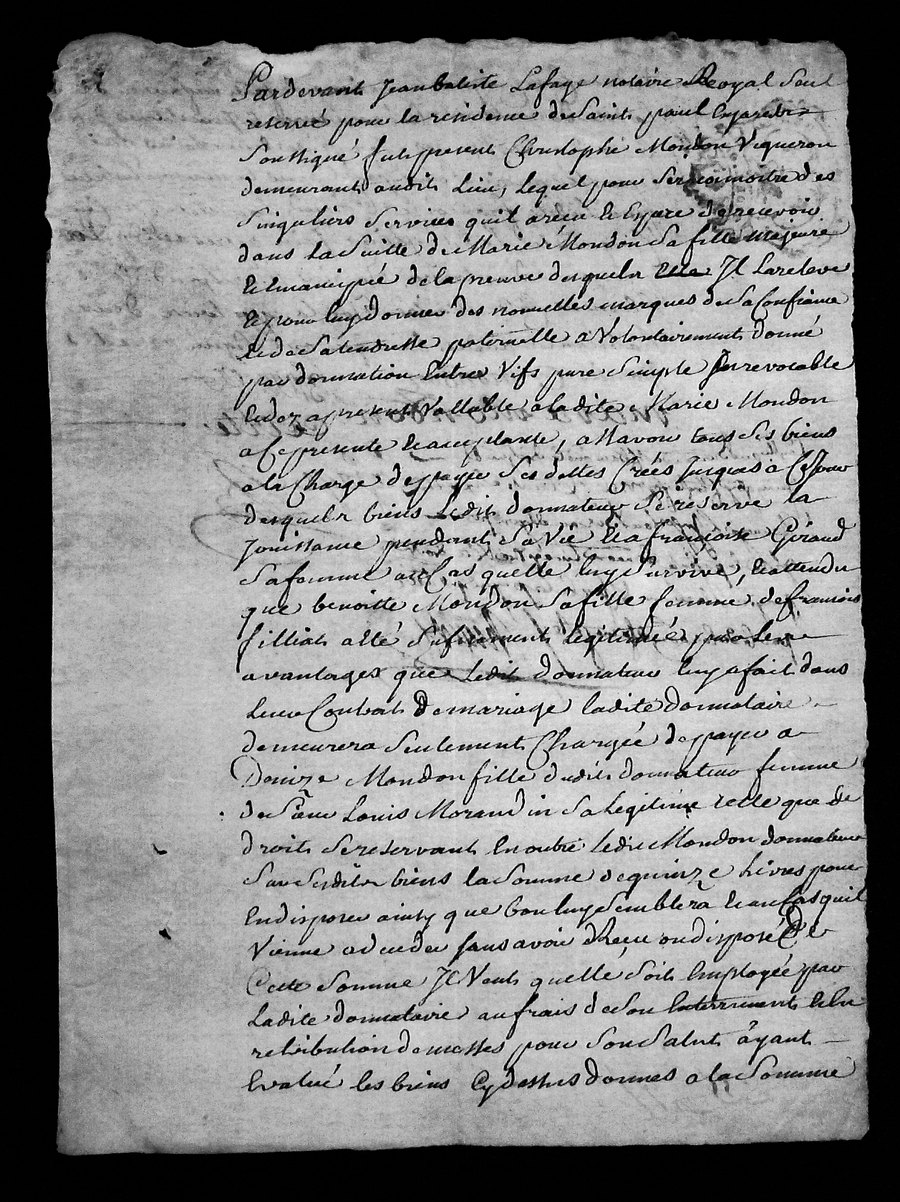 Pardevant Jean batiste Lafage notaire Royal Seul
reservé pour la residence de Saint paul En jarets
Soussigné fut present Christophe Mondon Vigneron
demeurant audit Lieu, lequel pour se reconnoitre des
Singuliers Services quil a recu et Espere de recevoir
dans la Suitte de Marie Mondon Sa fille majeure
et Emancipée de la preuve desquels Il La releve
et pour luy donner des nouvelles marques de Sa Confiance
et de Sa tendresse paternelle a Volontairement donné
par donnation Entre Vifs pure Simple Irrevocable
et dez apresent Vallable a ladite Marie Mondon
a Ce presente et acceptante, a Savoir tous Ses biens
a la Charge de payer Ses dettes Créés Jusques a Ce Jour
desquels biens Ledit donnateur Se reserve la
Jouissance pendant Sa Vie et a françoise Giraud
Sa femme au Cas quelle luy Survive, et attendu
que benoitte Mondon Sa fille femme de francois
filliat a eté Sufisament legitimée par les
avantages que Ledit donnateur luy a fait dans
Leur Contrat de mariage ladite donnataire
demeurera Seulement Chargée de payer a
Denize Mondon fille dudit donnateur femme
de Sieur Louis Morandin Sa legitime telle que de
droit Se reservant En outre ledit Mondon donnateur
Sur Sesdits biens la Somme de quinze Livres pour
En disposer ainsy que bon luy Semblera et au Cas quil
Vienne a deceder Sans avoir Reçu ou disposé De
Cette Somme Il Veut quelle Soit Employée par
Ladite donnataire au frais de Son Enterrement et En
retribution de messes pour Son Salut ayant
Evalué les biens Cy dessus donnés a la Somme